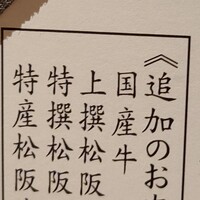 《追加のお
国産牛
上撰松阪
特撰松阪
特産松阪